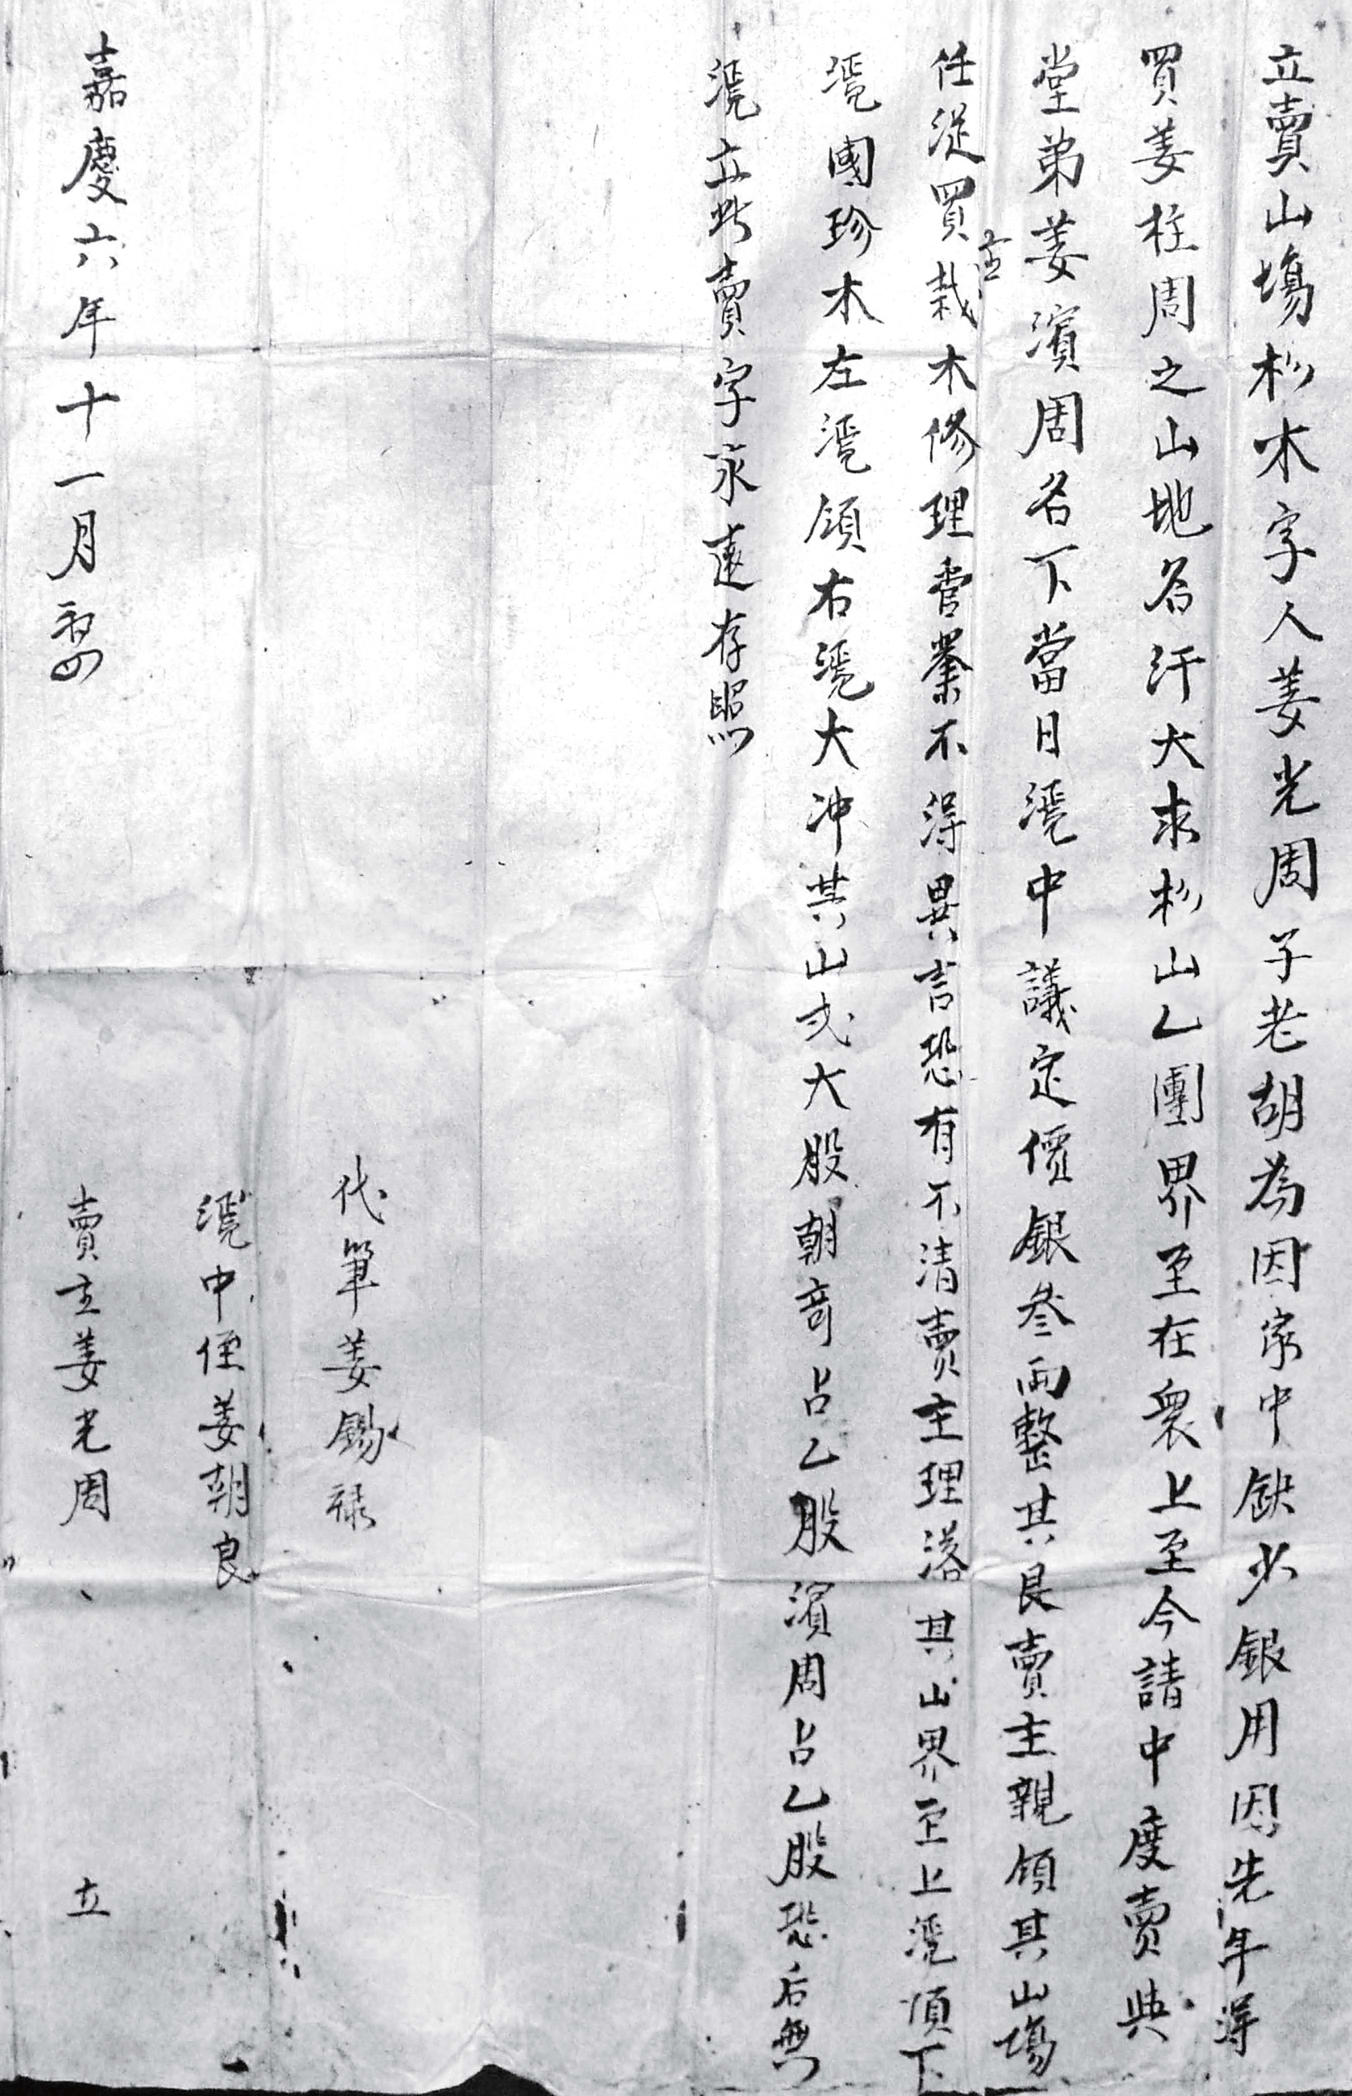 立賣山塲杉木字人姜光周子老胡為因家中缺少銀用因先年得
買姜柱周之山地名汙大求杉山乙團界至在衆上至今請中度賣與
堂弟姜濱周名下當日凴中議定價銀叁兩整其艮賣主親領其山塲
任從買主栽木修理管業不得異言恐有不清賣主理落其山界至上凴頂下
凴國珍木左凴領右凴大冲其山弍大股朝奇占乙股濱周占乙股恐后無
凴立此賣字永遠存照
代筆姜錫祿
凴中侄姜朝良
賣主姜光周 立
嘉慶六年十一月初四